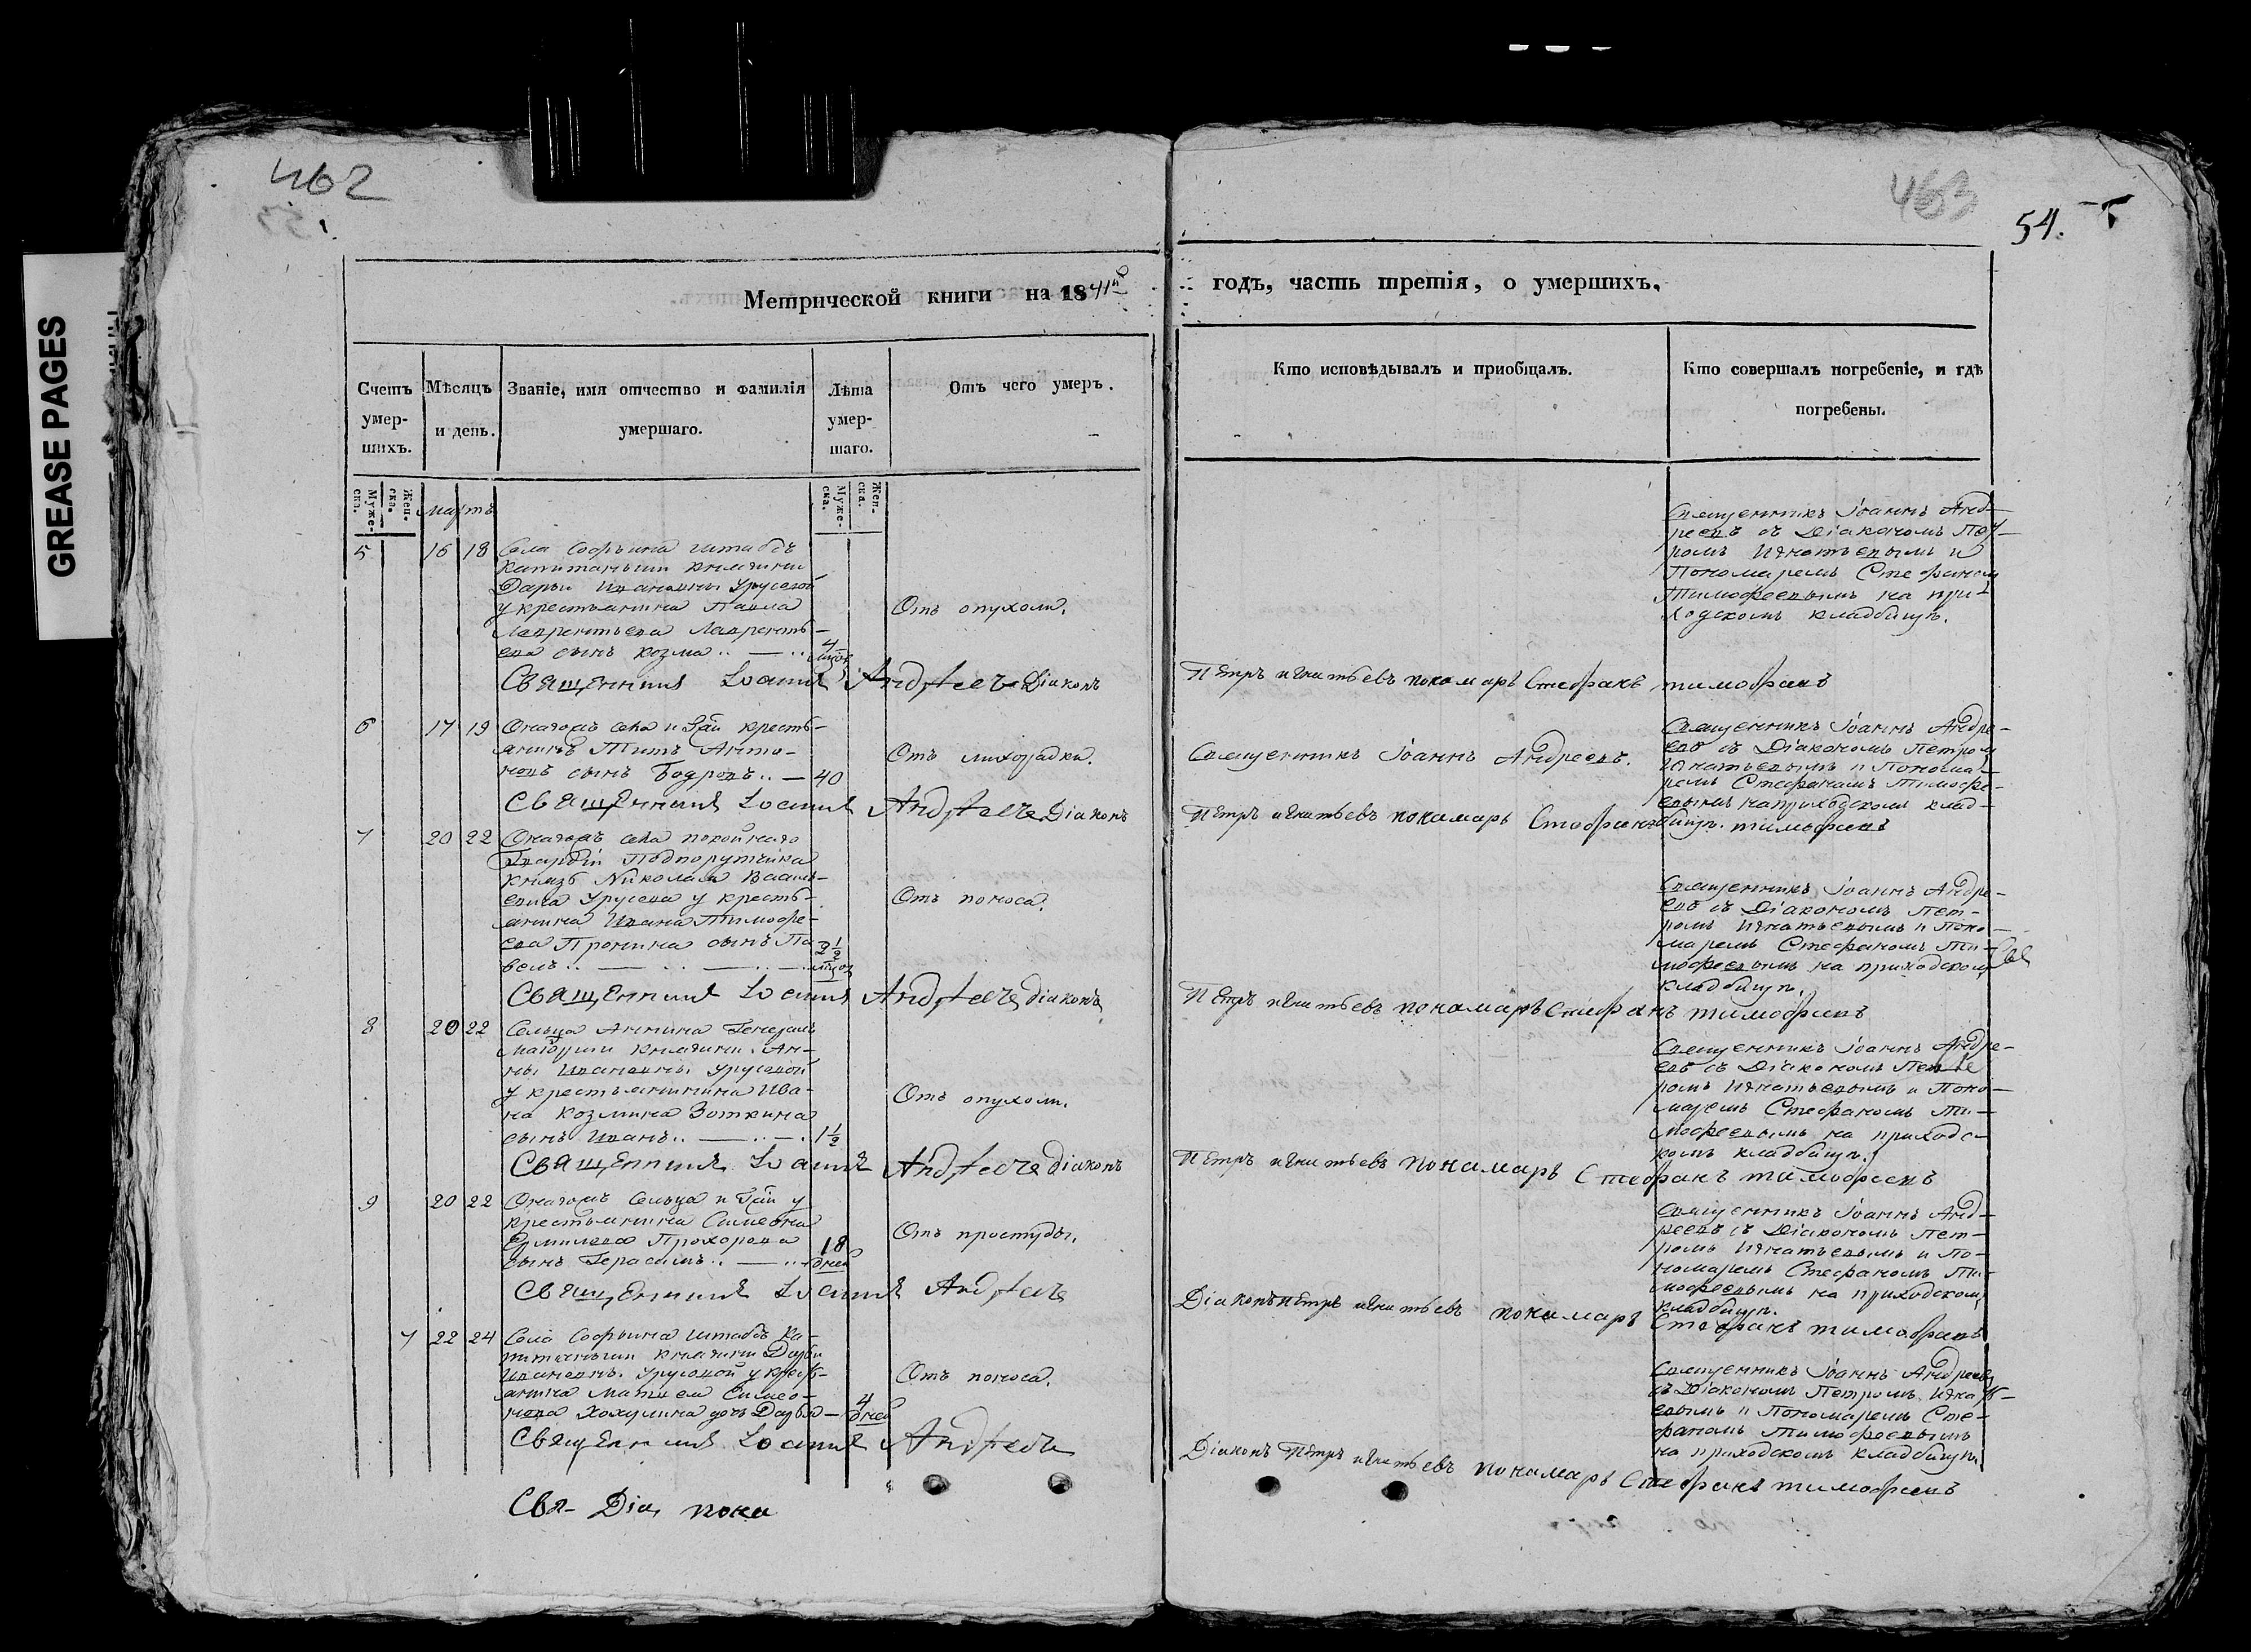 462
463
54.
GREASE PAGES
Метрической книги на 1841й
годъ, часть третія, о умершихъ.
Счетъ умер-шихъ.
Мѣсяцъ и день.
Званіе, имя отчество и фамилія умершаго.
Лѣта умер-шаго.
Отъ чего умеръ.
Кто исповѣдывалъ и пріобщалъ.
Кто совершалъ погребеніе, и гдѣ погребены.
Муже-ска.
Жен-ска.
Мартъ
Муже-ска.
Жен-ска.
5 16 18 Села Софьина штабсъ
капитанши княгини
Дарьи Ивановны Урусовой
у крестьянина Павла
Лаврентьева Лавренть-
ева сынъ Козма 4
Отъ опухоли.
Священникъ ІоаннъАнд-
реевъ съ Діакономъ Пет-
ромъ Игнатьевымъ и
Пономаремъ Стефаномъ
Тимофеевымъ на при-
ходскомъ кладбищѣ.
Священникъ Іоаннъ Андреевъ Діаконъ Петръ Игнатьевъ пономарь Стефанъ Тимофеевъ
6 17 19 Онагожъ села и Гжи кресть-
янинъ Титъ Анто-
новъ сынъ Бодровъ 40
Отъ лихорадки.
Священникъ Іоаннъ Андреевъ.
Священникъ Іоаннъ Андре-
евъ съ Діакономъ Петромъ
Игнатьевымъ и Понома-
ремъ Стефаномъ Тимофе-
евымъ на приходскомъ клад-
бищѣ.
Священникъ Іоаннъ Андреевъ Діаконъ Петръ Игнатьевъ пономарь Стефанъ Тимофеевъ
7 20 22 Онагожъ села покойнаго
Гвардіи Подпорутчика
князь Николая Василь-
евича Урусова у кресть-
янина Ивана Тимофе-
ева Пронина сынъ Па-
велъ 2 1/2
Отъ поноса.
Священникъ Іоаннъ Андре-
евъ съ Діакономъ Пет-
ромъ Игнатьевымъ и Поно-
маремъ Стефаномъ Ти-
мофеевымъ на приходскомъ
кладбищѣ.
Священникъ Іоаннъ Андреевъ діаконъ Петръ Игнатьевъ пономарь Стефанъ Тимофеевъ
8 20 22 Сельца Аннина Генералъ
Маіорши княгини Ан-
ны Ивановны Урусовой
у крестьянина Ива-
на Козмина Зоткина
сынъ Иванъ 1 1/2
Отъ опухоли.
Священникъ Іоаннъ Андре-
евъ съ Діакономъ Пет-
ромъ Игнатьевымъ и Поно-
маремъ Стефаномъ Ти-
мофеевымъ на приходс-
комъ кладбищѣ.
Священникъ Іоаннъ Андреевъ діаконъ Петръ Игнатьевъ пономарь Стефанъ Тимофеевъ
9 20 22 Онагожъ Сельца и Гжи у
крестьянина Симеона
Ермилева Прохорова
сынъ Герасимъ 18 дней
Отъ простуды.
Священникъ Іоаннъ Анд-
реевъ съ Діакономъ Пет-
ромъ Игнатьевымъ и По-
номаремъ Стефаномъ Ти-
мофеевымъ на приходскомъ
кладбищѣ.
Священникъ Іоаннъ Андреевъ Діаконъ Петръ Игнатьевъ пономарь Стефанъ Тимофеевъ
7 22 24 Села Софьина штабсъ Ка-
питанши княгини Дарьи
Ивановны Урусовой у крест-
янина Матвея Симео-
нова Хохулина дочь Дарья 4 дней
Отъ поноса.
Священникъ Іоаннъ Андреевъ
съ Діакономъ Петромъ Игнать-
евымъ и Пономаремъ Сте-
фаномъ Тимофеевымъ
на приходскомъ кладбищѣ
Священникъ Іоаннъ Андреевъ Діаконъ Петръ Игнатьевъ пономарь Стефанъ Тимофеевъ
Свя- Діа, поно